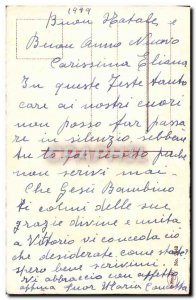 1999
Buon Natale e
Buon Anno Nuovo
Carissima Eliana
In queste Feste tanto
care ai nostri cuori
non posso far passa
re in silenzio sebben
che
non scrivi mai
Che Gesù Bambino
ti colmi delle sue
grazie divine e unita
a Vittorio vi conceda ciò
che desiderate, come state?
spero bene scrivimi.
Vi abbraccio con affetto
suor Maria